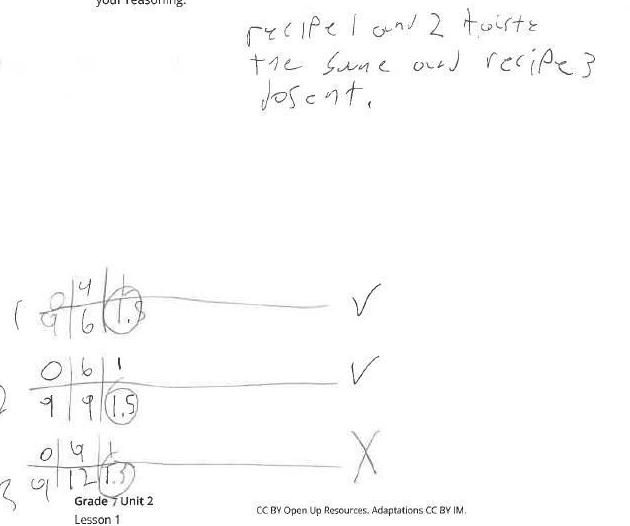 your reasoning.
recipe 1 and 2 taiste
the same and recipe 3
dosent.
1 0 4 1
9 6 1.5 ✓
2 0 6 1
9 9 1.5 ✓
3 0 9 1
9 12 1.3 X
Grade 7 Unit 2
Lesson 1
CC BY Open Up Resources. Adaptations CC BY IM.